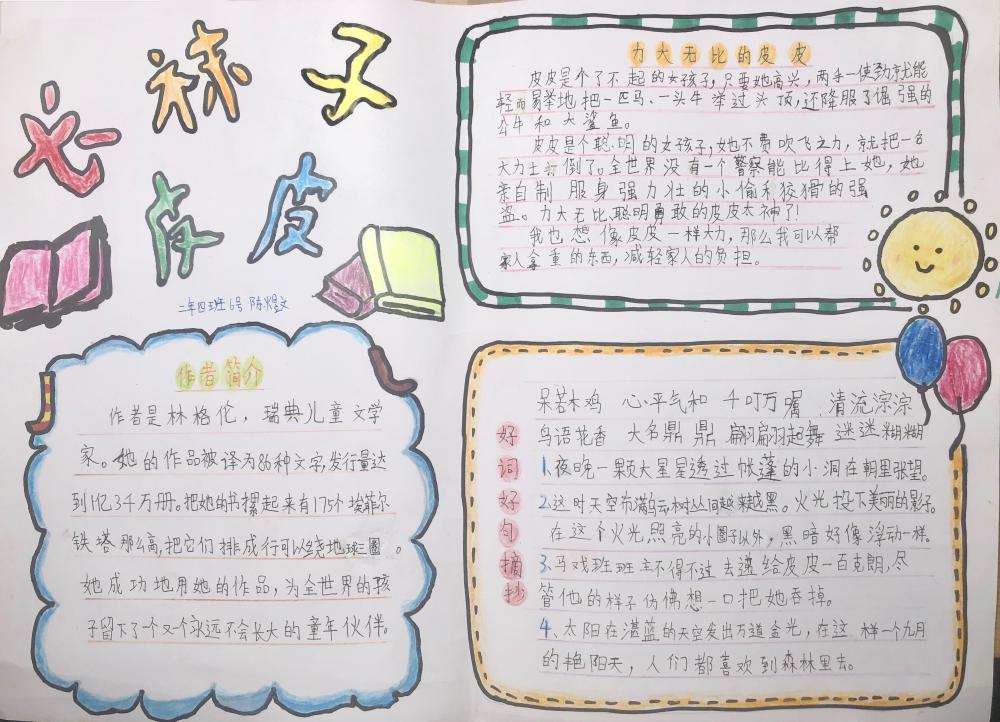 长袜子
皮皮
二年四班6号 陈煜文
力大无比的皮皮
皮皮是个了不起的女孩子,只要她高兴,两手一使劲就能
轻而易举地把一匹马、一头牛举过头顶,还降服了倔强的
公牛和大鲨鱼。
皮皮是个聪明的女孩子,她不费吹飞之力,就把一名
大力士打倒了。全世界没有一个警察能比得上她,她
亲自制服身强力壮的小偷和狡猾的强
盗。力大无比聪明勇敢的皮皮太神了!
我也想像皮皮一样大力,那么我可以帮
家人拿重的东西,减轻家人的负担。
作者简介
作者是林格伦,瑞典儿童文学
家。她的作品被译为86种文字,发行量达
到1亿3千万册。把她的书摞起来有175个埃菲尔
铁塔那么高,把它们排成行可以绕地球三圈。
她成功地用她的作品,为全世界的孩
子留下了一个又一个永远不会长大的童年伙伴。
好词好句摘抄
呆若木鸡 心平气和 千叮万嘱 清流淙淙
鸟语花香 大名鼎鼎 翩翩起舞 迷迷糊糊
1、夜晚一颗大星星透过帐蓬的小洞在朝里张望。
2、这时天空布满乌云,树丛间越来越黑。火光投下美丽的影子。
在这个火光照亮的小圈子以外,黑暗好像浮动一样。
3、马戏班班主不得不过去递给皮皮一百克朗,尽
管他的样子仿佛想一口把她吞掉。
4、太阳在湛蓝的天空发出万道金光,在这样一个九月
的艳阳天,人们都喜欢到森林里去。